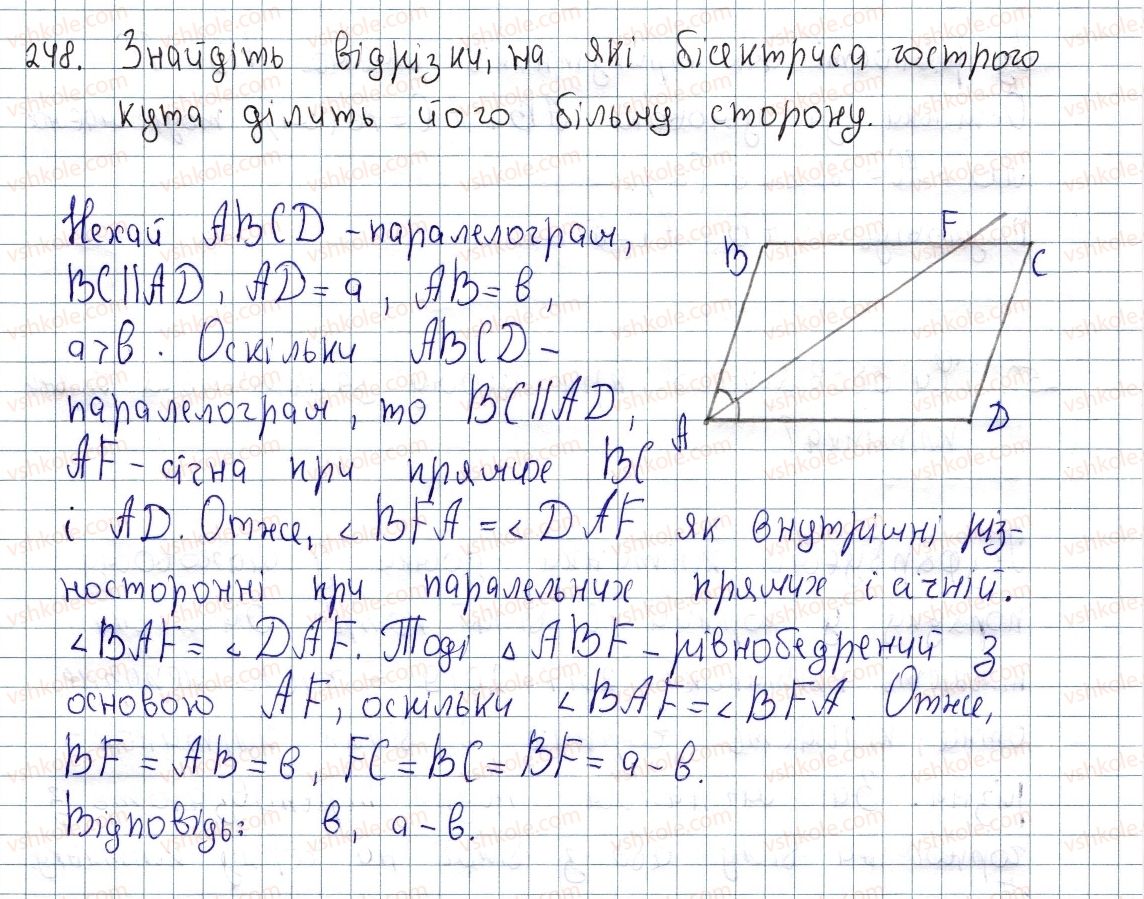 248. Знайдіть відрізки, на які бісектриса гострого
кута ділить його більшу сторону.
Нехай ABCD - паралелограм,
BC||AD, AD = a, AB = в,
a > в. Оскільки ABCD -
паралелограм, то BC||AD,
AF - січна при прямих BC
і AD. Отже, ∠BFA = ∠DAF як внутрішні різ-
носторонні при паралельних прямих і січній.
∠BAF = ∠DAF. Тоді △ABF - рівнобедрений з
основою AF, оскільки ∠BAF = ∠BFA. Отже,
BF = AB = в, FC = BC = BF = a - в.
Відповідь: в, a - в.
B
F
C
A
D
vshkole.com